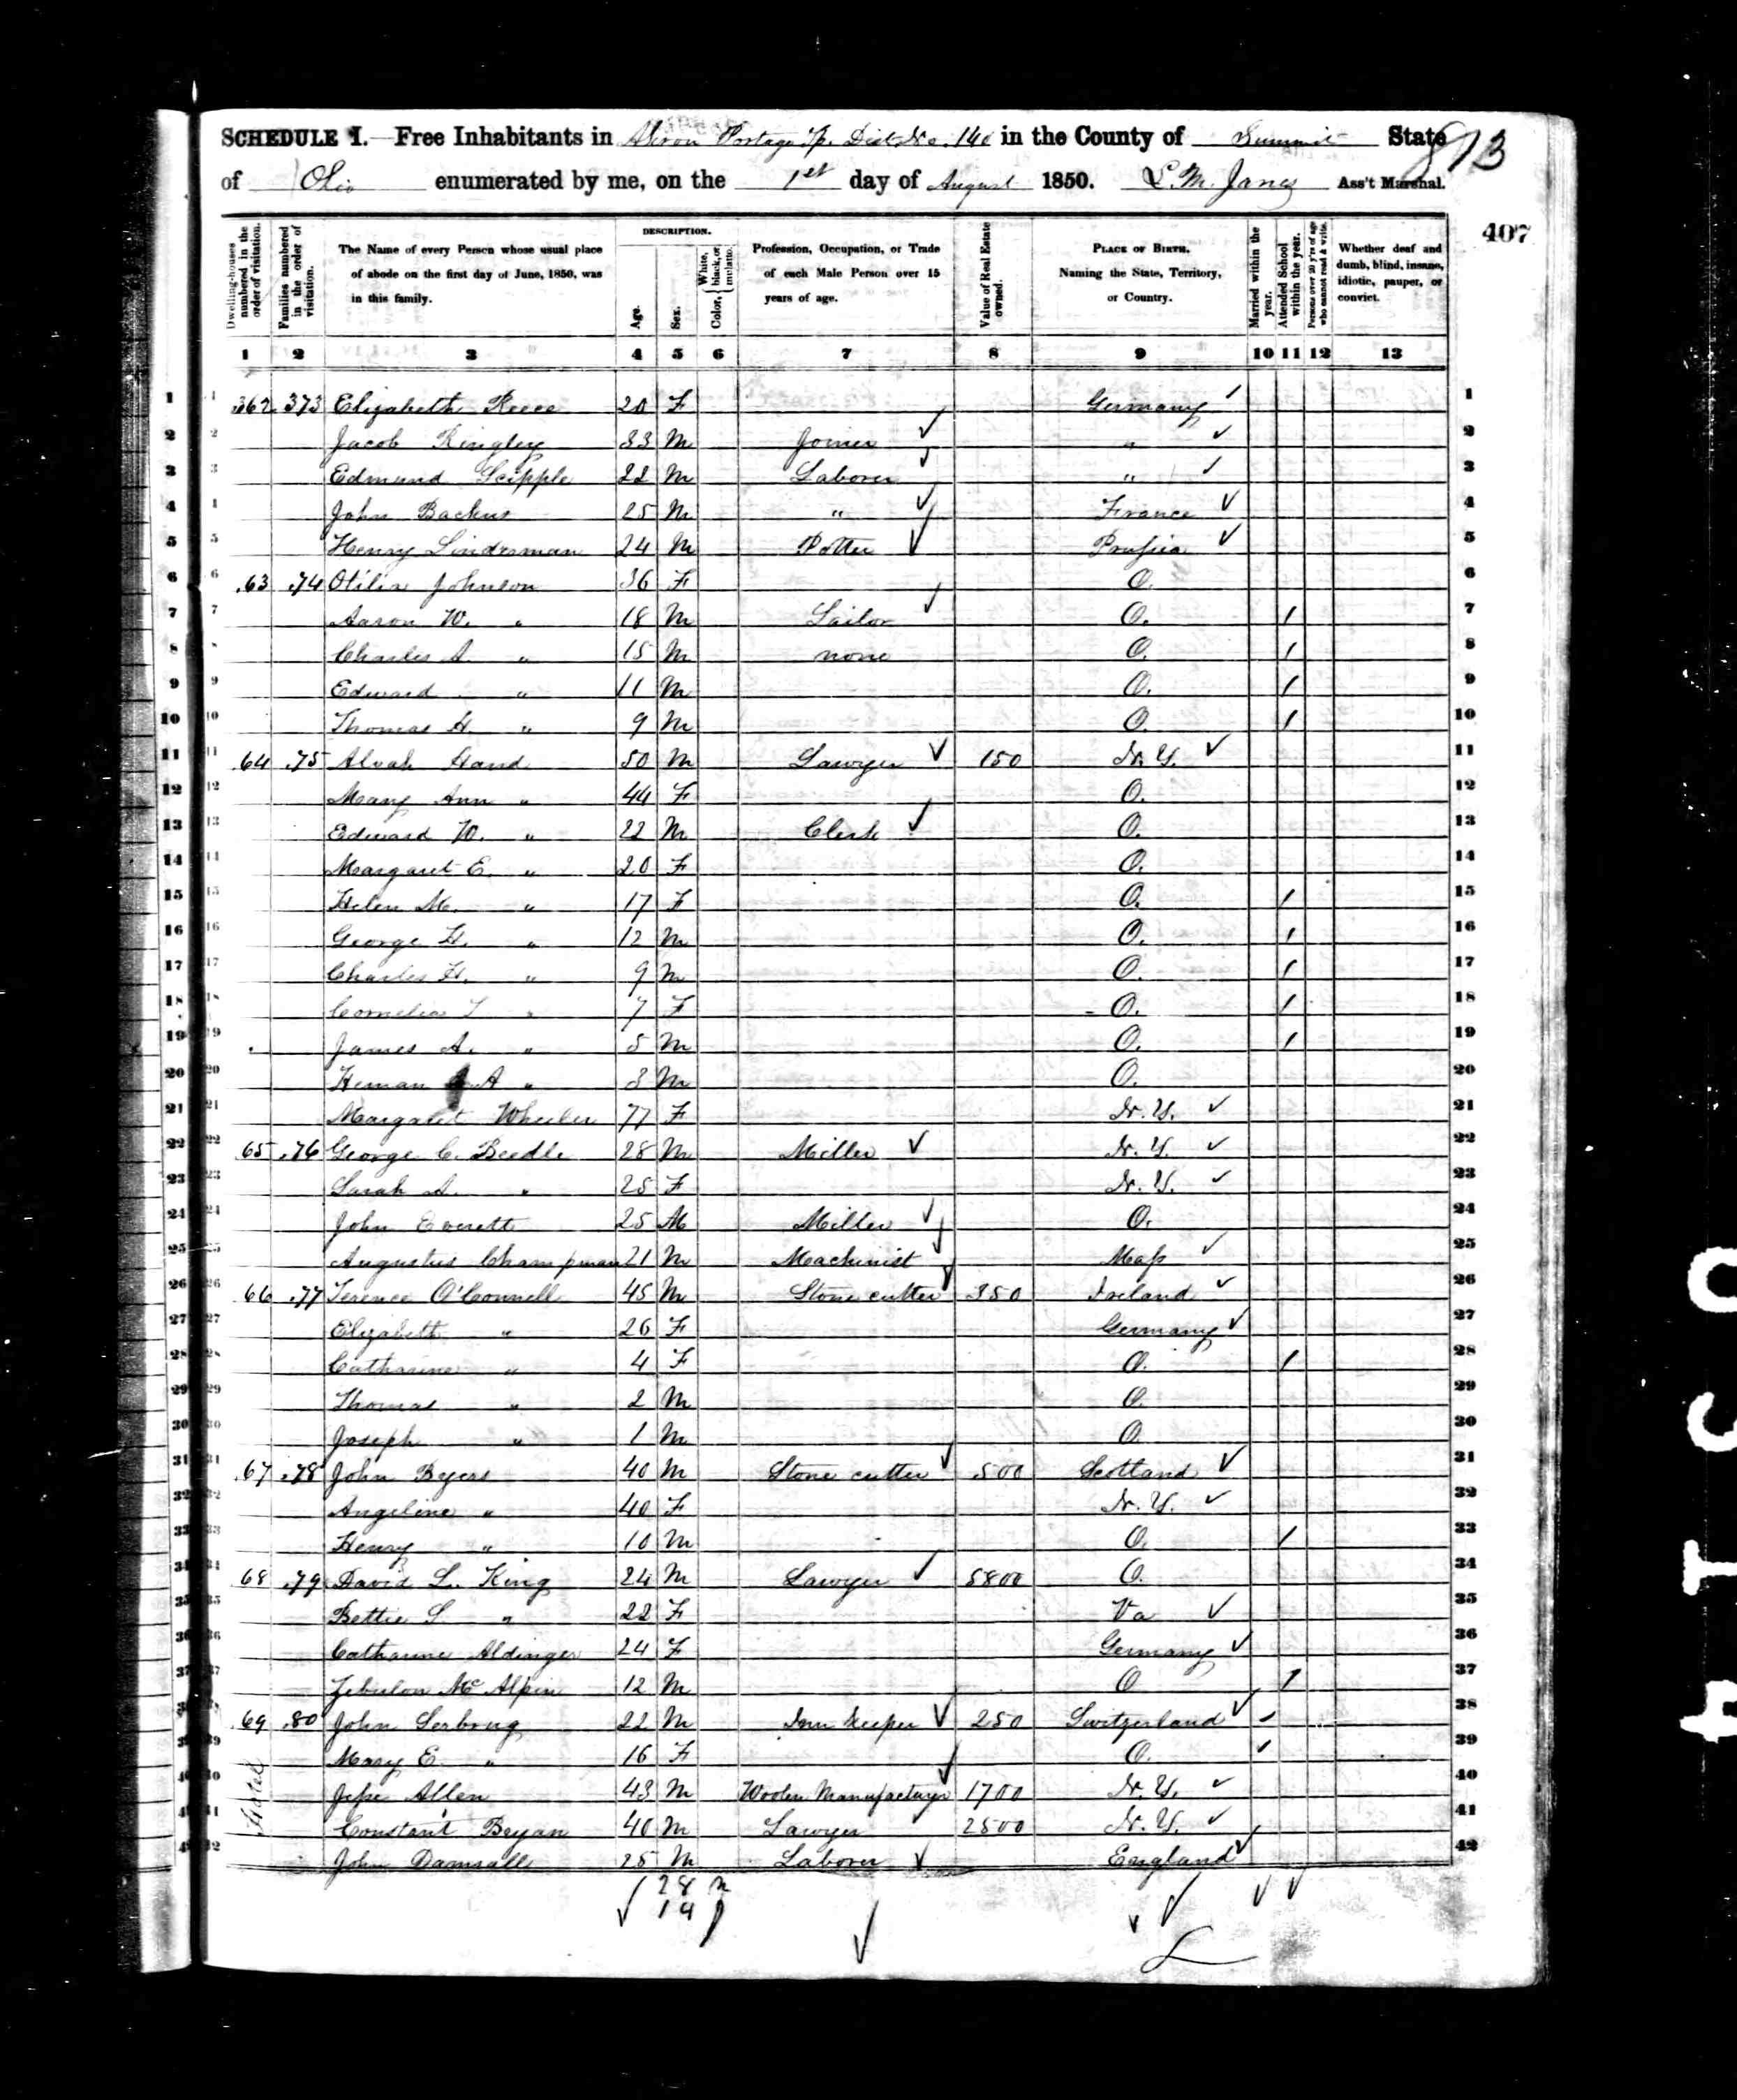 SCHEDULE I.—Free Inhabitants in Akron Portage Tp. Dist. No. 140 in the County of Summit State
of Ohio enumerated by me, on the 1st day of August 1850. Ass't Marshal.
813
407
Dwelling-houses numbered in the order of visitation.
Families numbered in the order of visitation.
The Name of every Person whose usual place of abode on the first day of June, 1850, was in this family.
DESCRIPTION.
Age.
Sex.
Color, { White, black, or mulatto.
Profession, Occupation, or Trade of each Male Person over 15 years of age.
Value of Real Estate owned.
PLACE OF BIRTH. Naming the State, Territory, or Country.
Married within the year.
Attended School within the year.
Persons over 20 y'rs of age who cannot read & write.
Whether deaf and dumb, blind, insane, idiotic, pauper, or convict.
1 2 3 4 5 6 7 8 9 10 11 12 13
1 362 373 Elizabeth Reece 20 F Germany 1
2 Jacob Ringley 33 M Joiner " 2
3 Edmund Scipple 22 M Laborer " 3
4 John Backus 25 M " France 4
5 Henry Linderman 24 M Potter Prussia 5
6 63 74 Otilia Johnson 36 F O. 6
7 Aaron W. " 18 M O. / 7
8 Charles A. " 15 M none O. / 8
9 Edward " 11 M O. / 9
10 Thomas H. " 9 M O. / 10
11 64 75 Alvah Hand 50 M Lawyer 150 N.Y. 11
12 Mary Ann " 44 F O. 12
13 Edward W. " 22 M Clerk O. 13
14 Margaret E. " 20 F O. 14
15 Helen M. " 17 F O. / 15
16 George H. " 12 M O. / 16
17 Charles H. " 9 M O. / 17
18 Cornelia " 7 F O. / 18
19 James A. " 5 M O. / 19
20 Heman A " 3 M O. 20
21 Margaret Wheeler 77 F N.Y. 21
22 65 76 George C. Beedle 28 M Miller N.Y. 22
23 Sarah A. " 25 F N.Y. 23
24 John Everett 25 M Miller O. 24
25 Augustus Champman 21 M Machinist Mass 25
26 66 77 Terence O'Connell 45 M Stone cutter 350 Ireland 26
27 Elizabeth " 26 F Germany 27
28 Catharine " 4 F O. / 28
29 Thomas " 2 M O. 29
30 Joseph " 1 M O. 30
31 67 78 John Byers 40 M Stone cutter 500 Scotland 31
32 Angeline " 40 F N.Y. 32
33 Henry " 10 M O. / 33
34 68 79 David L. King 24 M Lawyer 5800 O. 34
35 Bettie S " 22 F Va 35
36 Catharine Aldinger 24 F Germany 36
37 Zebulon McAlpin 12 M O / 37
38 69 80 John 22 M Inn Keeper 250 Switzerland / 38
39 Mary E " 16 F O. / 39
40 Hotel Jesse Allen 43 M Woolen Manufacturer 1700 N.Y. 40
41 Constant Bryan 40 M Lawyer 2500 N.Y. 41
42 John Damsall 25 M Laborer England 42
28 m
14 f